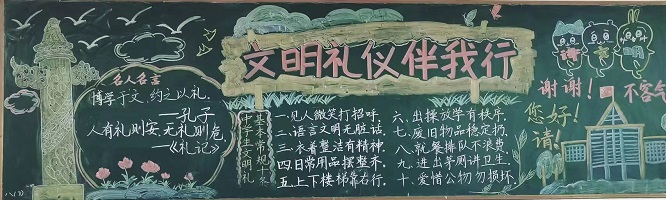 文明礼仪伴我行
名人名言
博学于文,约之以礼。
——孔子
人有礼则安,无礼则危。
——《礼记》
中学生文明礼
基本常规十久
一、见人微笑打招呼,
二、语言文明无脏话,
三、衣着整洁有精神,
四、日常用品摆整齐,
五、上下楼梯靠右行,
六、出操放学有秩序,
七、废旧物品稳定扔,
八、就餐排队不浪费,
九、进出车厕讲卫生,
十、爱惜公物勿损坏。
谢谢!
不客气
您好!
请!
讲
文
明